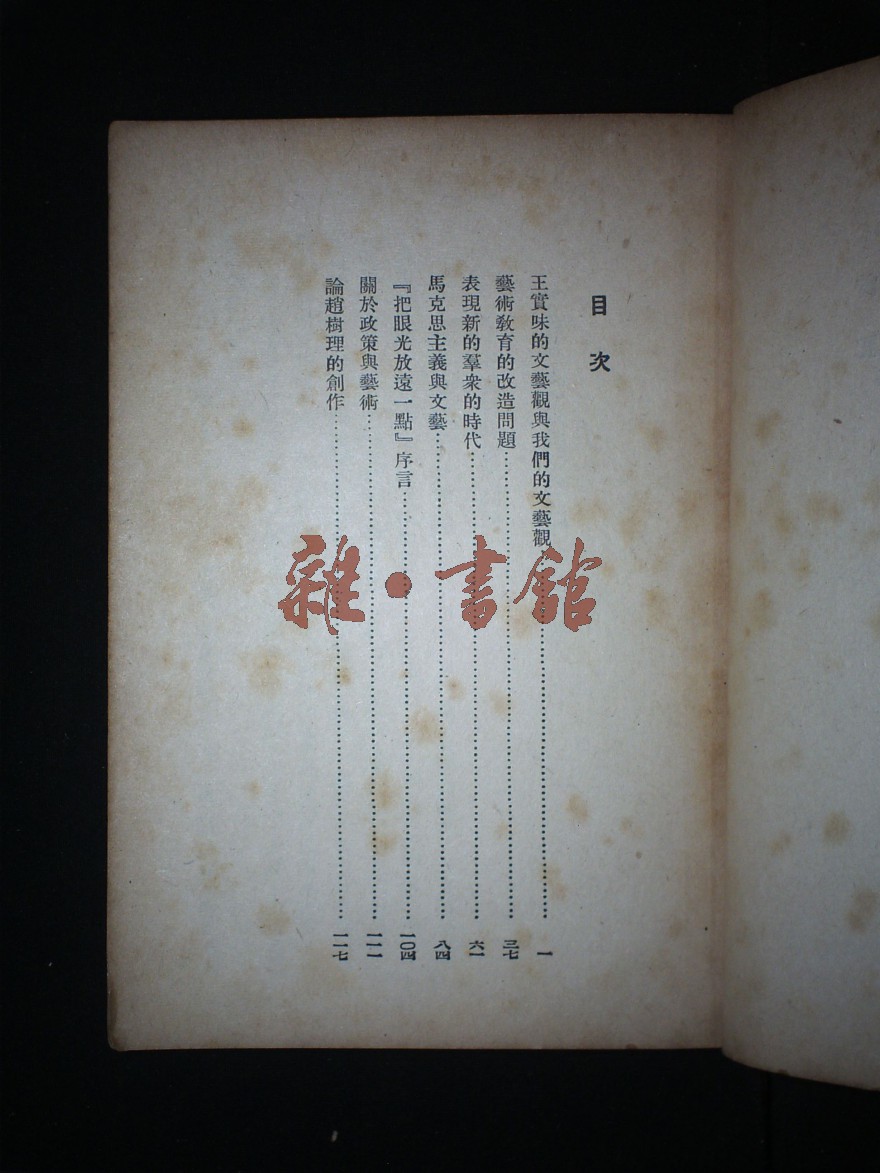 目次
王實味的文藝觀與我們的文藝觀……一
藝術教育的改造問題……三七
表現新的羣衆的時代……六一
馬克思主義與文藝……八四
『把眼光放遠一點』序言……一〇四
關於政策與藝術……一一一
論趙樹理的創作……一一七
雜·書館